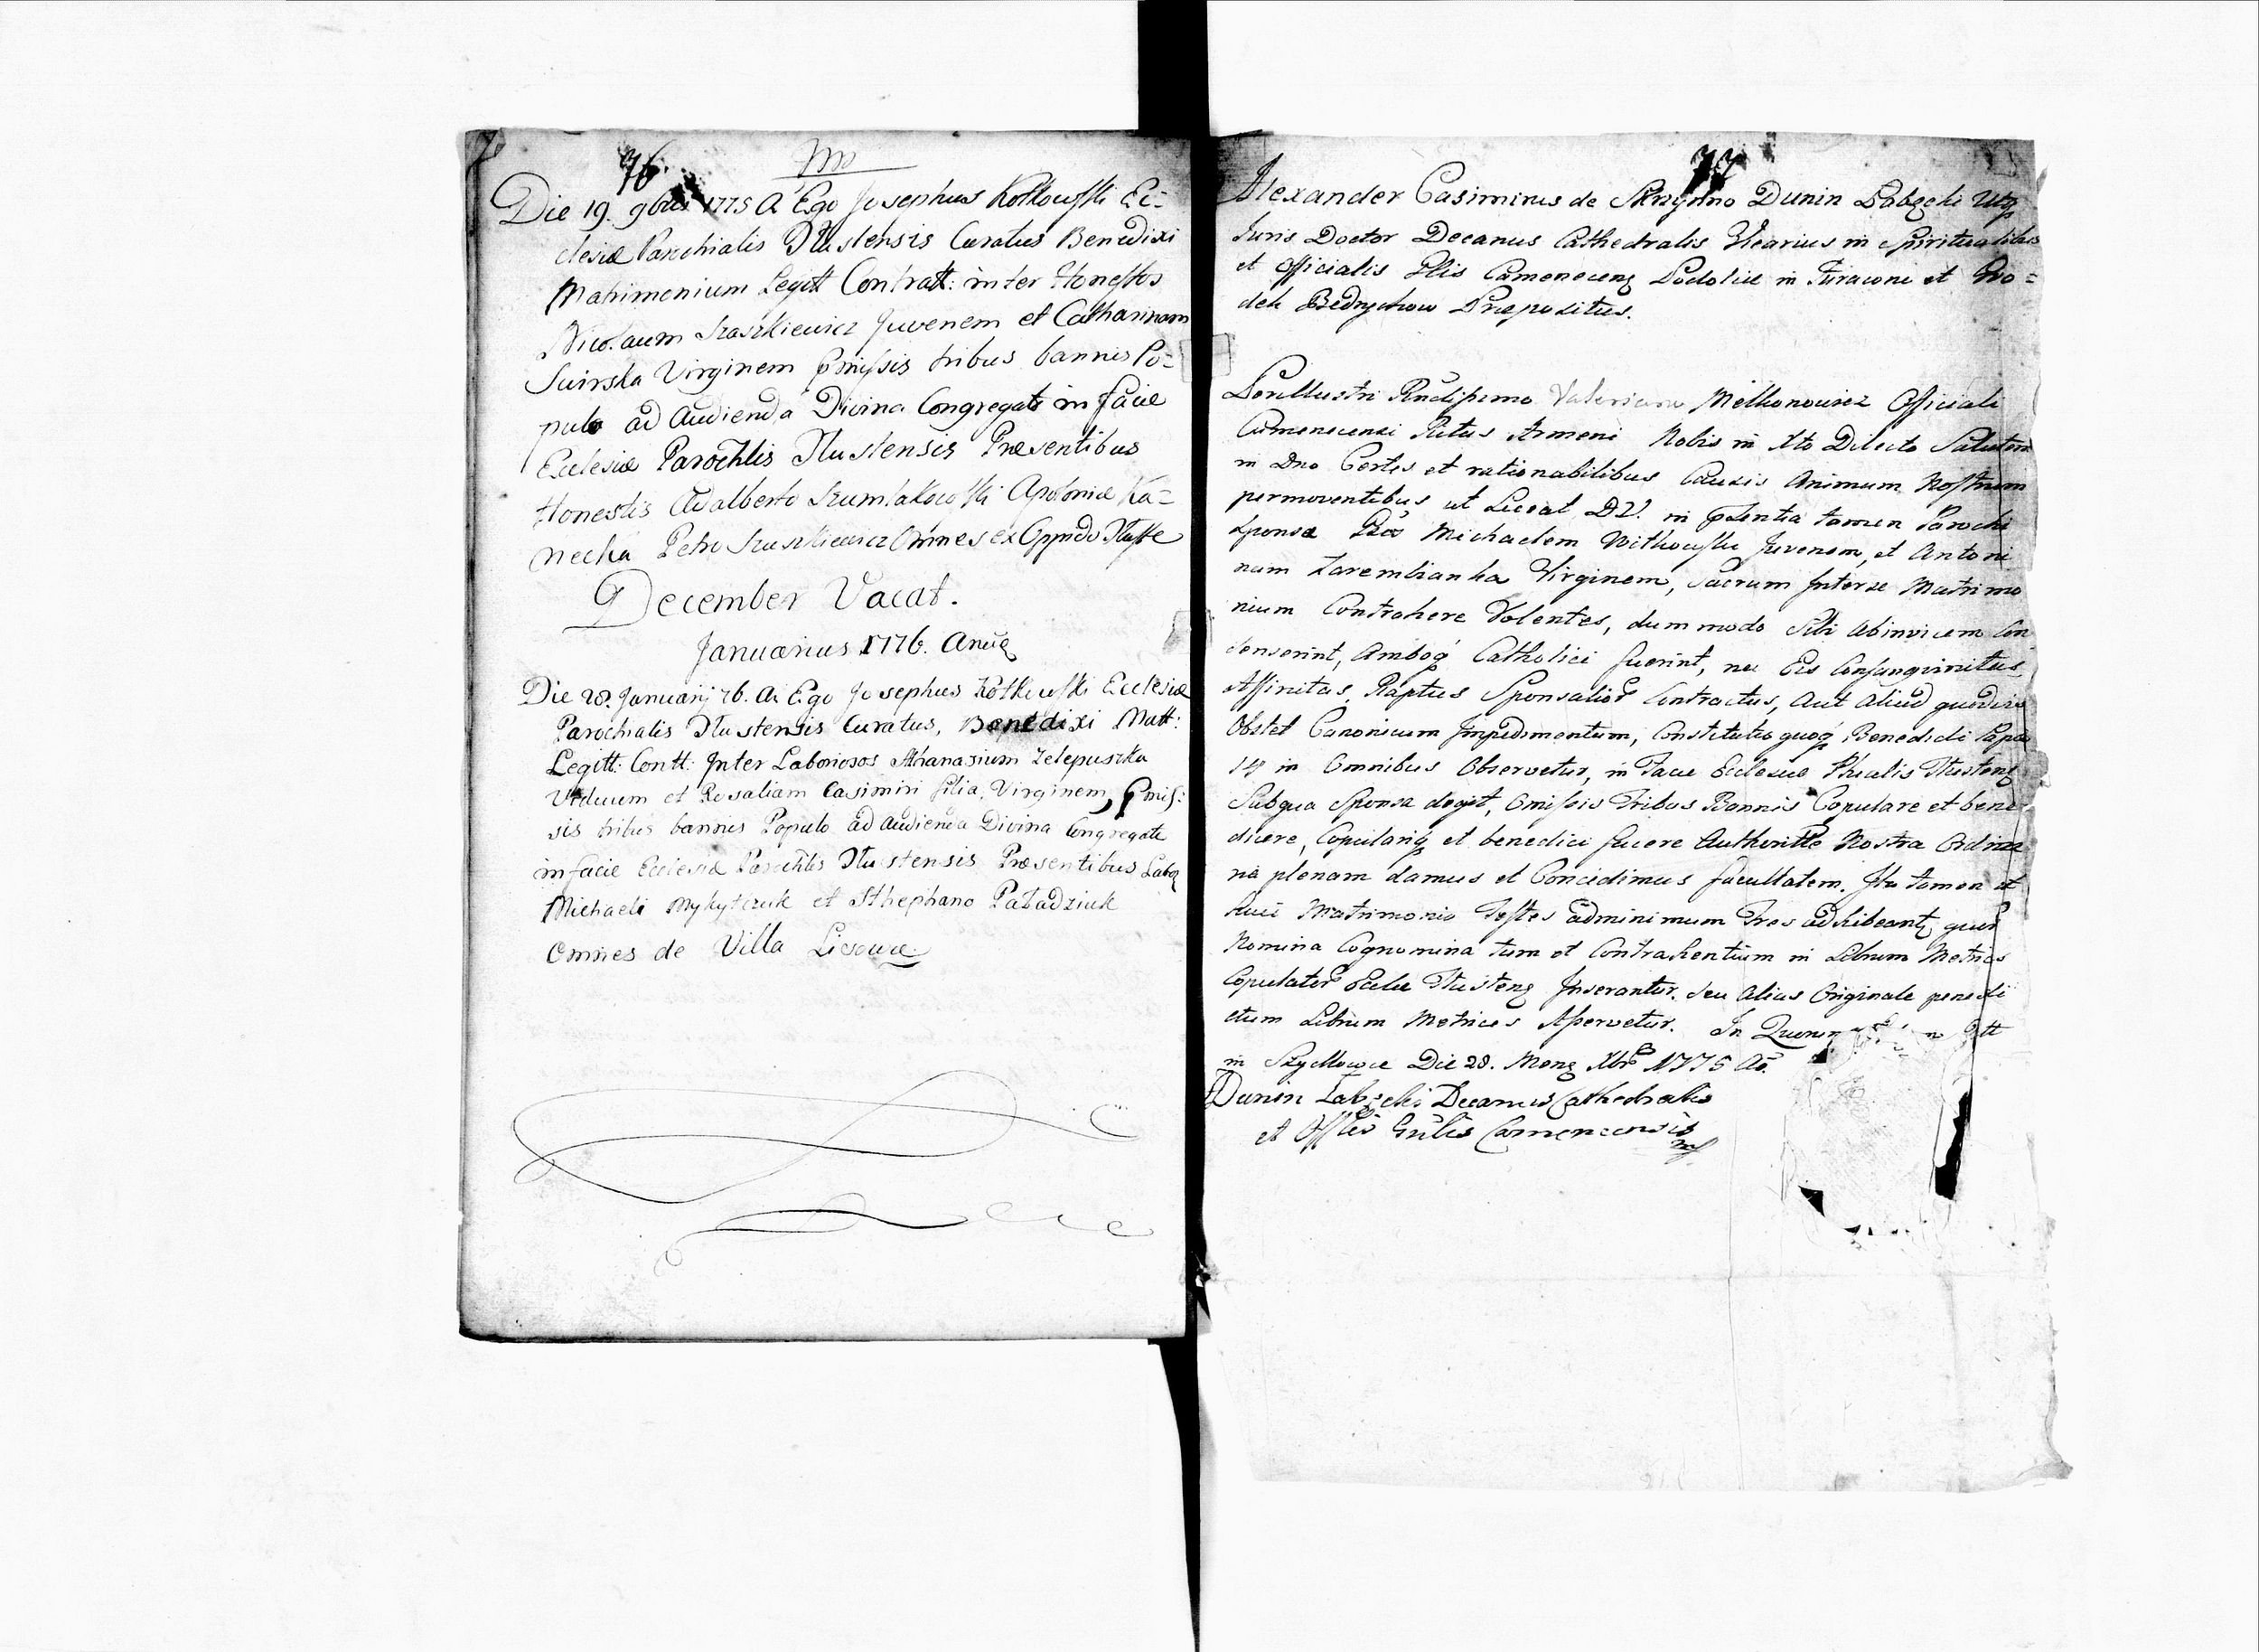 76.
Die 19. 9bris 1775 A Ego Josephus Kotkowski Ec-
clesiæ Parochialis Tlustensis Curatus Benedixi
Matrimonium Legitt Contratt: inter Honestos
Nicolaum Staszkiewicz Juvenem et Catharinam
Suirska Virginem pmissis tribus bannis Po-
pulo ad Audienda Divina Congregato in facie
Ecclesiæ Parochlis Tlustensis Præsentibus
Honestis Adalberto Szumlakowski Apolonia Ka-
necka Petro Staszkiewicz Omnes ex Oppido Tluste
December Vacat.
Januarius 1776. Anni
Die 28. Januarij 76. Ai Ego Josephus Kotkowski Ecclesiæ
Parochialis Tlustensis Curatus, Benedixi Matt:
Legitt: Contt: Inter Laboriosos Athanasium Zelepuszka
Viduum et Rosaliam Casimiri filia Virginem, pmis-
sis tribus bannis Populo ad Audienda Divina Congregato
in facie Ecclesiæ Parochlis Tlustensis Præsentibus Labor
Michaeli Mykytczuk et Sthephano Paladziuk
Omnes de Villa Lisowce.
77
Alexander Casimirus de Skrzynno Dunin Labęcki Utq
Juris Doctor Decanus Cathedralis Vicarius in Spiritualibus
et Officialis Glis Camenecens Podoliæ in Turacone et Gro-
dek Bedrychow Præpositus.
Perillustri Rndissimo Valeriano Melkonowicz Officiali
Camenecensi Ritus Armeni Nobis in Xto Dilecto Salutem
in Dno Certis et rationabilibus Causis Animum Nostrum
permoventibus ut Liceat D.V. in psentia tamen Parochi
Sponsæ Michaelem Witkowski Juvenem, et Antoni
nam Zarembianka Virginem, Sacrum Inter se Matrimo
nium Contrahere Volentes, dummodo Sibi ab invicem Con
senserint, Amboq Catholici fuerint, nec Eis Consangvinitas
Affinitas, Raptus Sponsalior Contractus, Aut Aliud quodvis
Obstet Canonicum Impedimentum, Constitutio quoq Benedicti Papæ
14 in Omnibus Observetur, in Facie Ecclesiæ Phialis Tlustens
Sub qua Sponsa degit, Omissis Tribus Bannis Copulare et bene
dicere, Copulariq et benedici facere Authoritte Nostra Ordina
ria plenam damus et Concedimus facultatem. Ita tamen ut
huic Matrimonio Testes ad minimum Tres adhibeant, quor
Nomina Cognomina tum et Contrahentium in Librum Metrices
Copulator Eccliæ Tlustens Inserantur. Seu Alias Originale penes di
ctum Librum Metrices Asservetur. In Quorum
in Szydlowce Die 28. Mens Xbr 1775 Ao.
Dunin Labęcki Decanus Cathedralis
et Offlis Gnlis Camenecensis